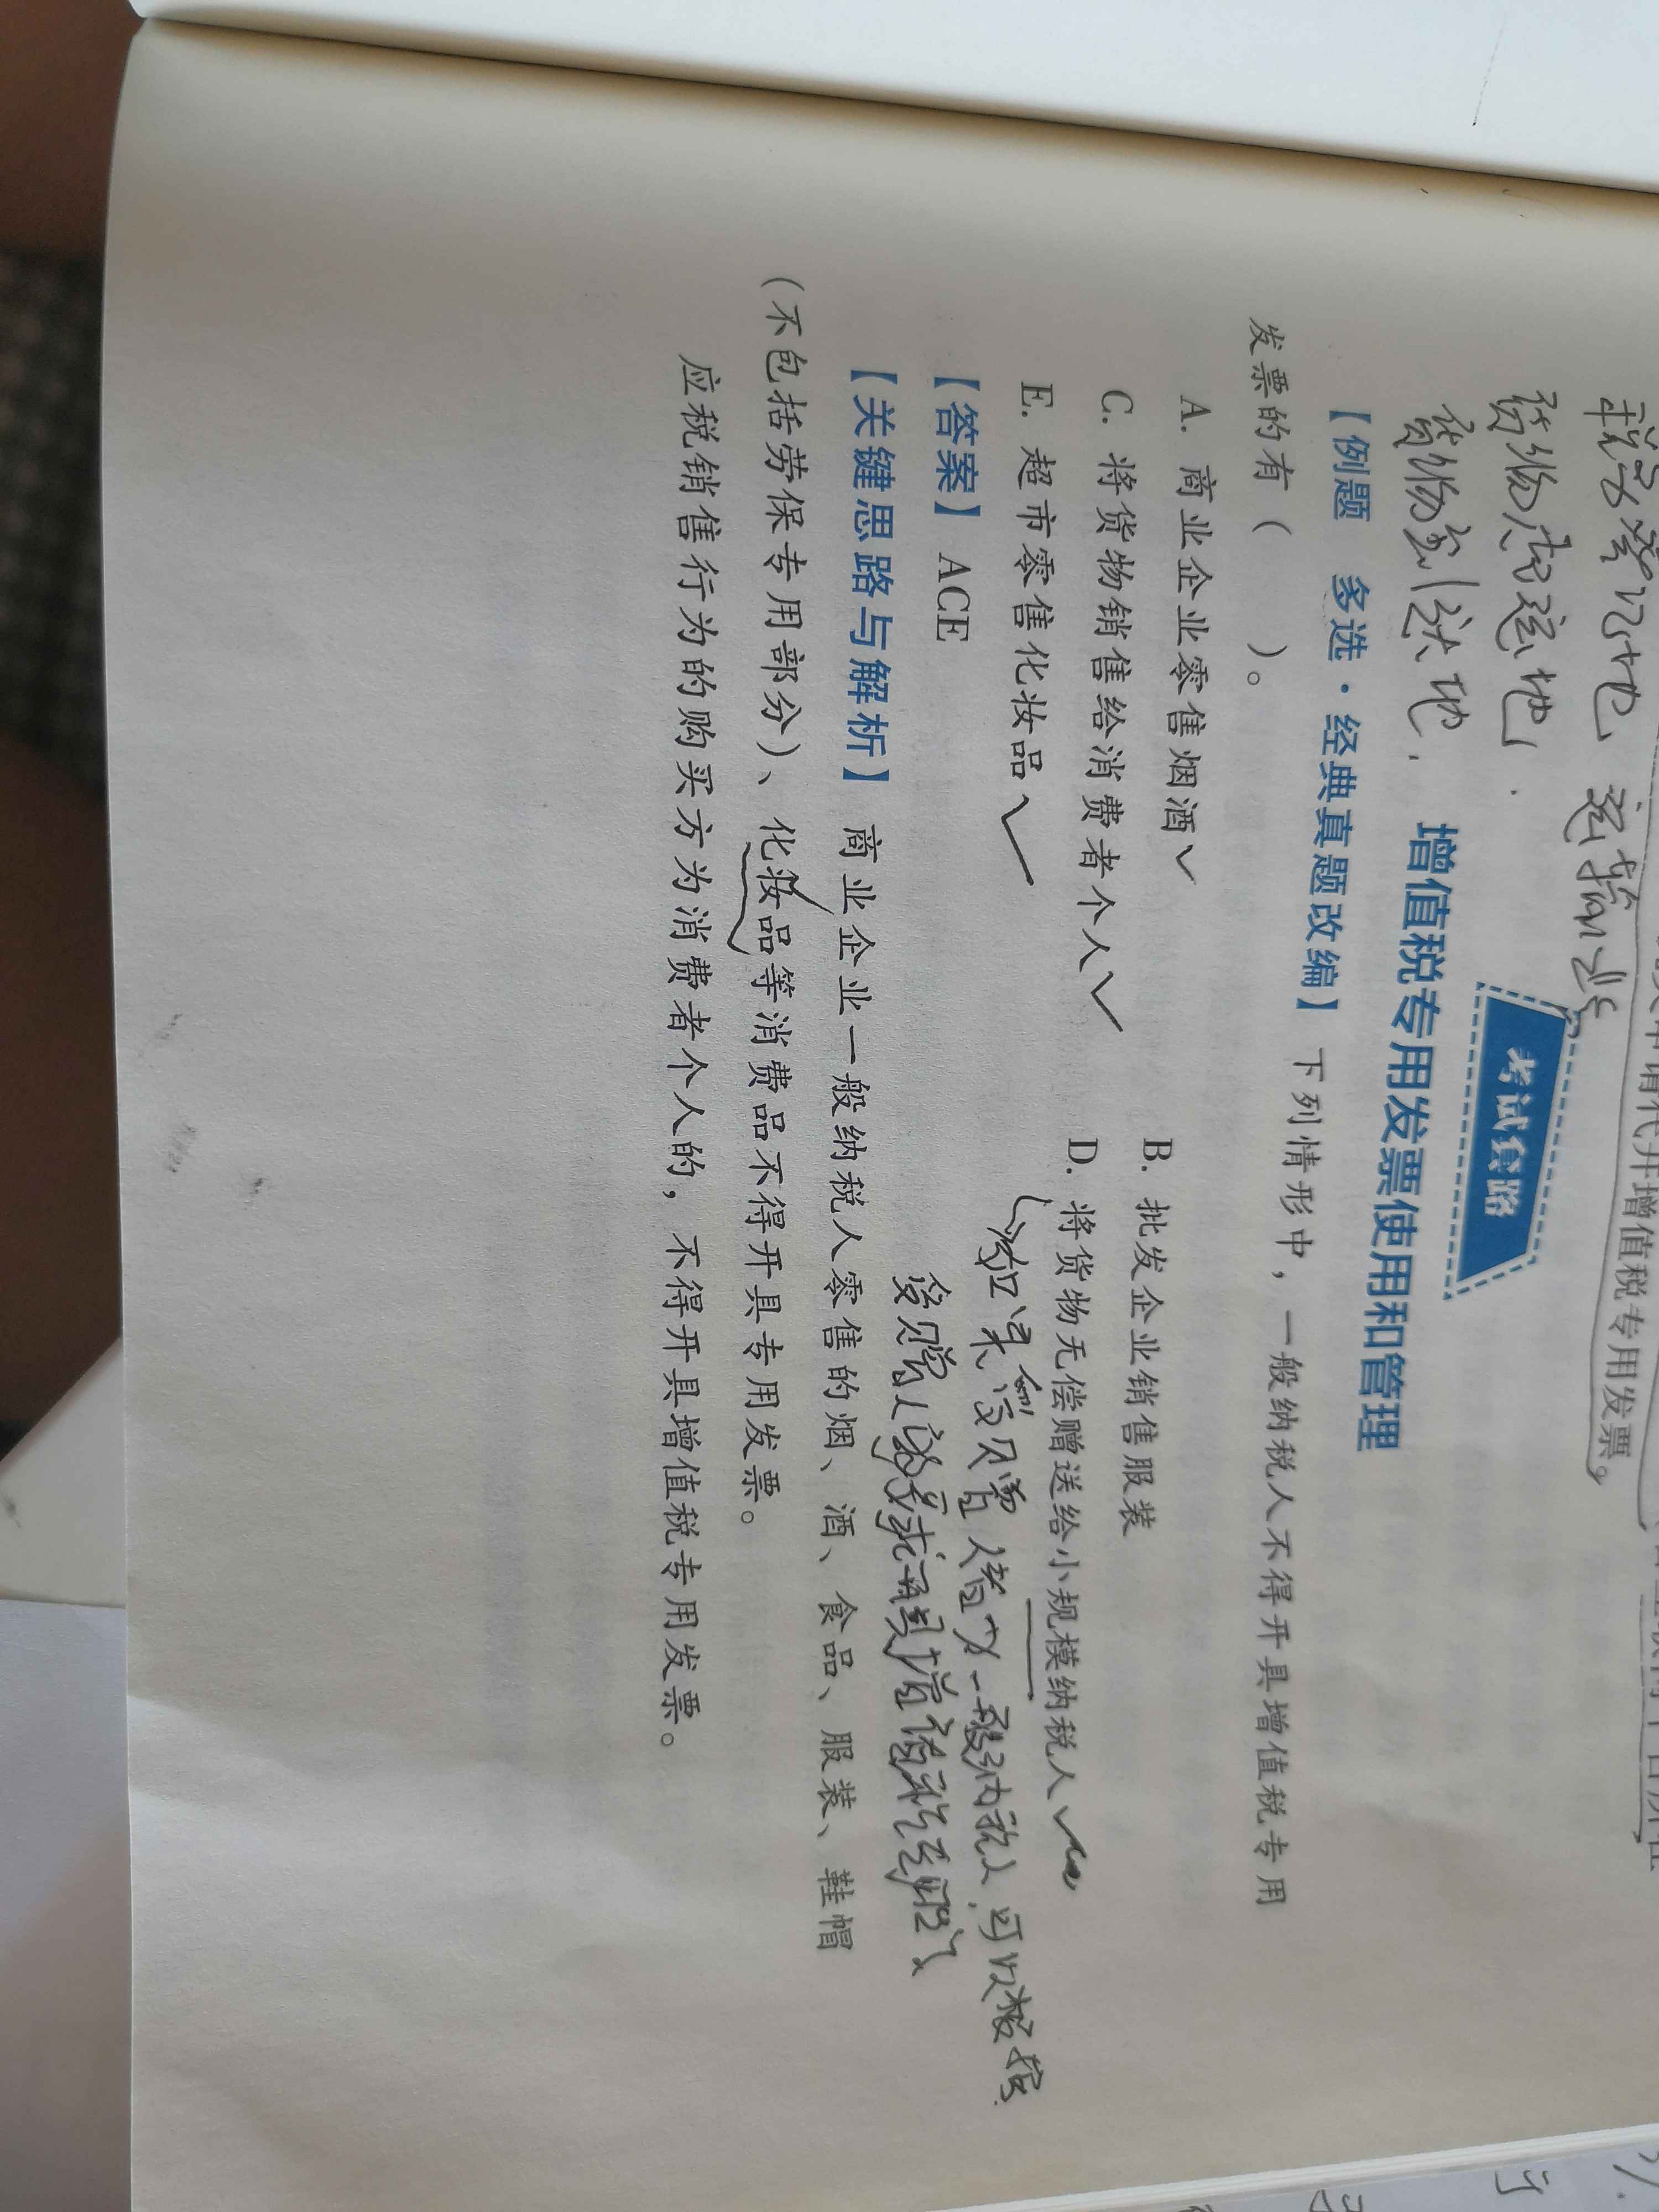 税务登记地 运输业
货物起运地
货物到达地
申请代开增值税专用发票。
考试套路
增值税专用发票使用和管理
【例题 多选·经典真题改编】下列情形中，一般纳税人不得开具增值税专用
发票的有（ ）。
A. 商业企业零售烟酒✓
B. 批发企业销售服装
C. 将货物销售给消费者个人✓
D. 将货物无偿赠送给小规模纳税人✓
E. 超市零售化妆品✓
受赠者为一般纳税人,可以根据
受赠人的要求开具增值税专用
【答案】ACE
【关键思路与解析】商业企业一般纳税人零售的烟、酒、食品、服装、鞋帽
（不包括劳保专用部分）、化妆品等消费品不得开具专用发票。
应税销售行为的购买方为消费者个人的，不得开具增值税专用发票。